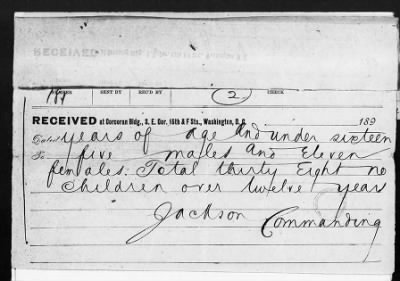 RECEIVED
SENT BY REC'D BY CHECK
2
RECEIVED at Corcoran Bldg., S. E. Cor. 15th & F Sts., Washington, D. C. 189
Dated years of age and under sixteen
To five males and Eleven
females. Total thirty Eight no
children over twelve years
Jackson Commanding